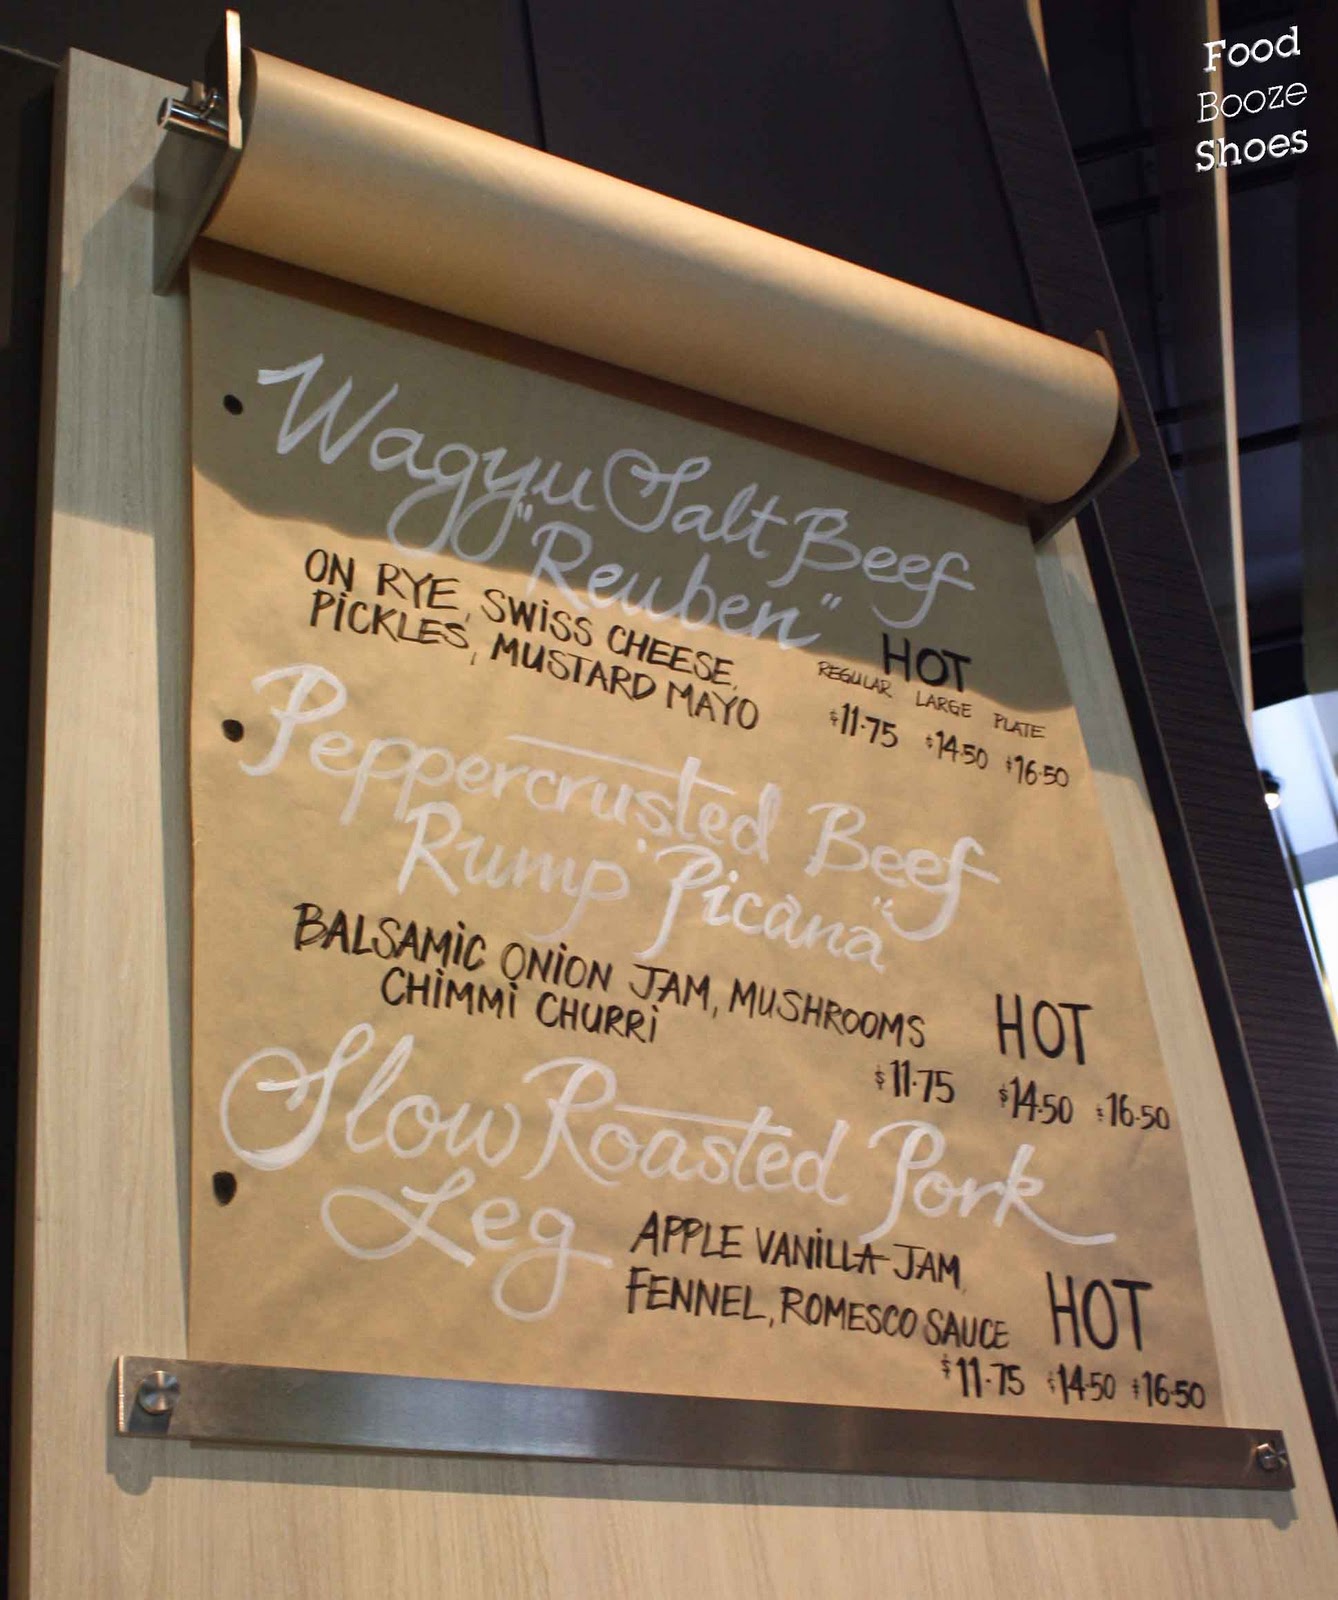 Food
Booze
Shoes
Wagyu Salt Beef
"Reuben"
ON RYE, SWISS CHEESE,
PICKLES, MUSTARD MAYO
HOT
REGULAR LARGE PLATE
$11.75 $14.50 $16.50
Peppercrusted Beef
Rump "Picana"
BALSAMIC ONION JAM, MUSHROOMS
CHIMMI CHURRI
HOT
$11.75 $14.50 $16.50
Slow Roasted Pork
Leg
APPLE VANILLA JAM,
FENNEL, ROMESCO SAUCE
HOT
$11.75 $14.50 $16.50